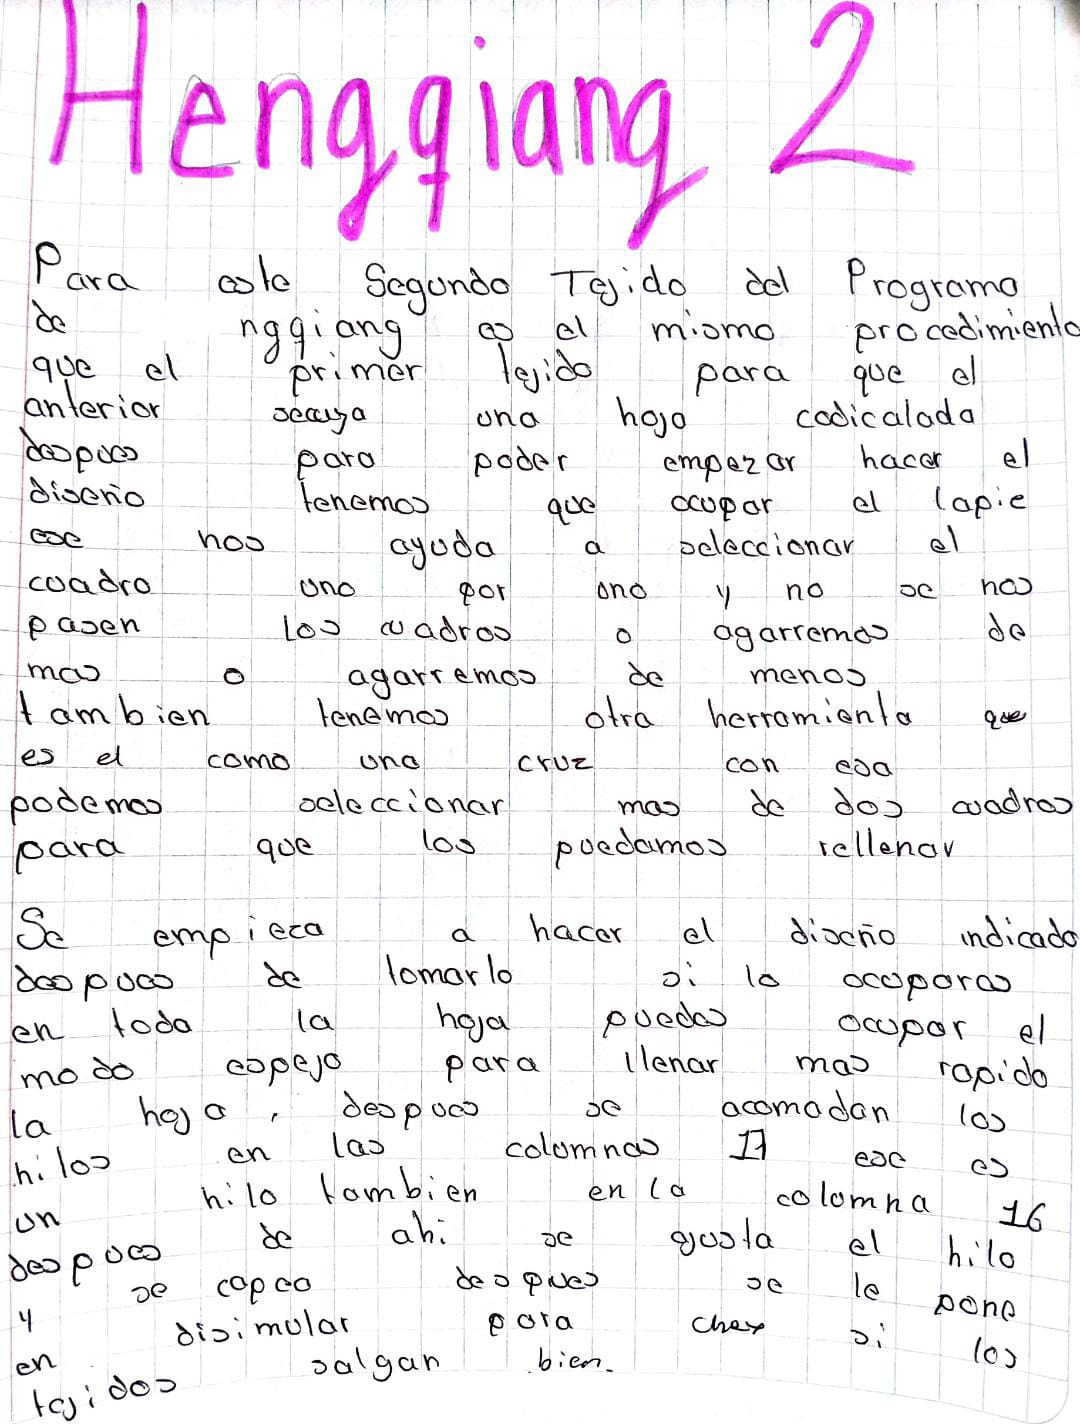 Hengqiang 2
Para este Segundo Tejido del Programa
de ngqiang es el mismo procedimiento
que el primer tejido para que el
anterior una hoja codicalada
despues para poder empezar hacer el
diseño tenemos que ocupar el lapie
ese nos ayuda a seleccionar el
cuadro uno por uno y no se nos
pasen los cuadros o agarremos de
mas o agarremos de menos
tambien tenemos otra herramienta que
es el como una cruz con esa
podemos seleccionar mas de dos cuadros
para que los puedamos rellenar
Se empieza a hacer el diseño indicado
despues de tomarlo si lo ocuparas
en toda la hoja puedes ocupar el
modo espejo para llenar mas rapido
la hoja, despues se acomodan los
hilos en las columnas 17 ese es
un hilo tambien en la columna 16
despues de ahi se ajusta el hilo
y se copea despues se le pone
en disimular para si los
tejidos salgan bien.